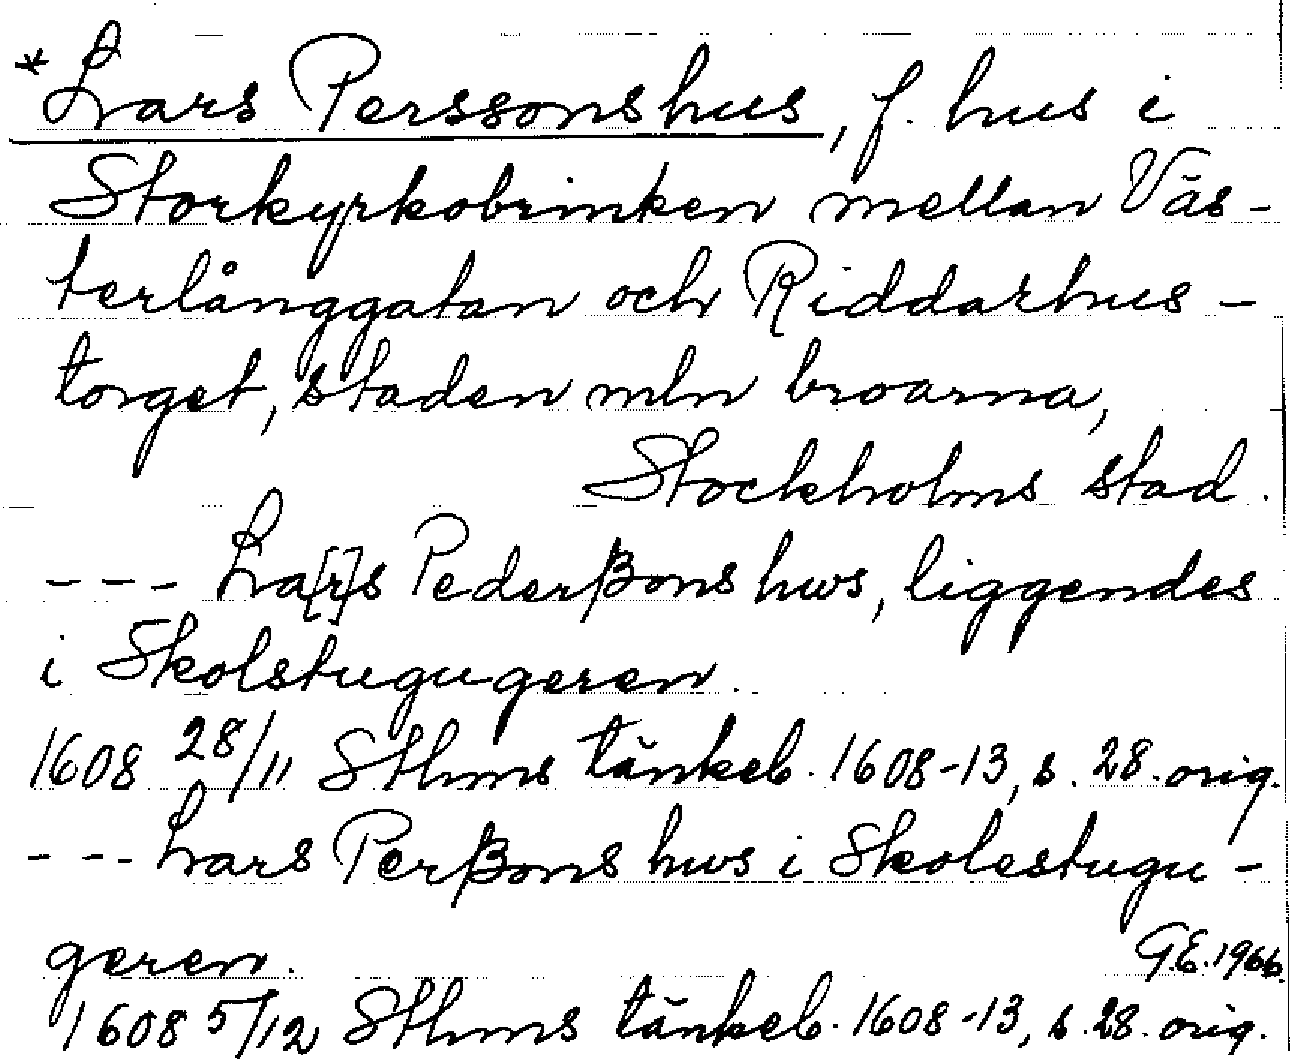 *Lars Perssonshus, f. hus i
Storkyrkobrinken mellan Väs-
terlånggatan och Riddarhus-
torget, staden mln broarna,
Stockholms stad.
--- La[r]s Pederßons hws, liggendes
i Skolstugugeren.
1608 28/11 Sthms tänkeb. 1608-13, s. 28. orig.
--- Lars Perßons hws i Skolestugu-
geren.
G.E. 1966.
1608 5/12 Sthms tänkeb. 1608-13, s. 28. orig.